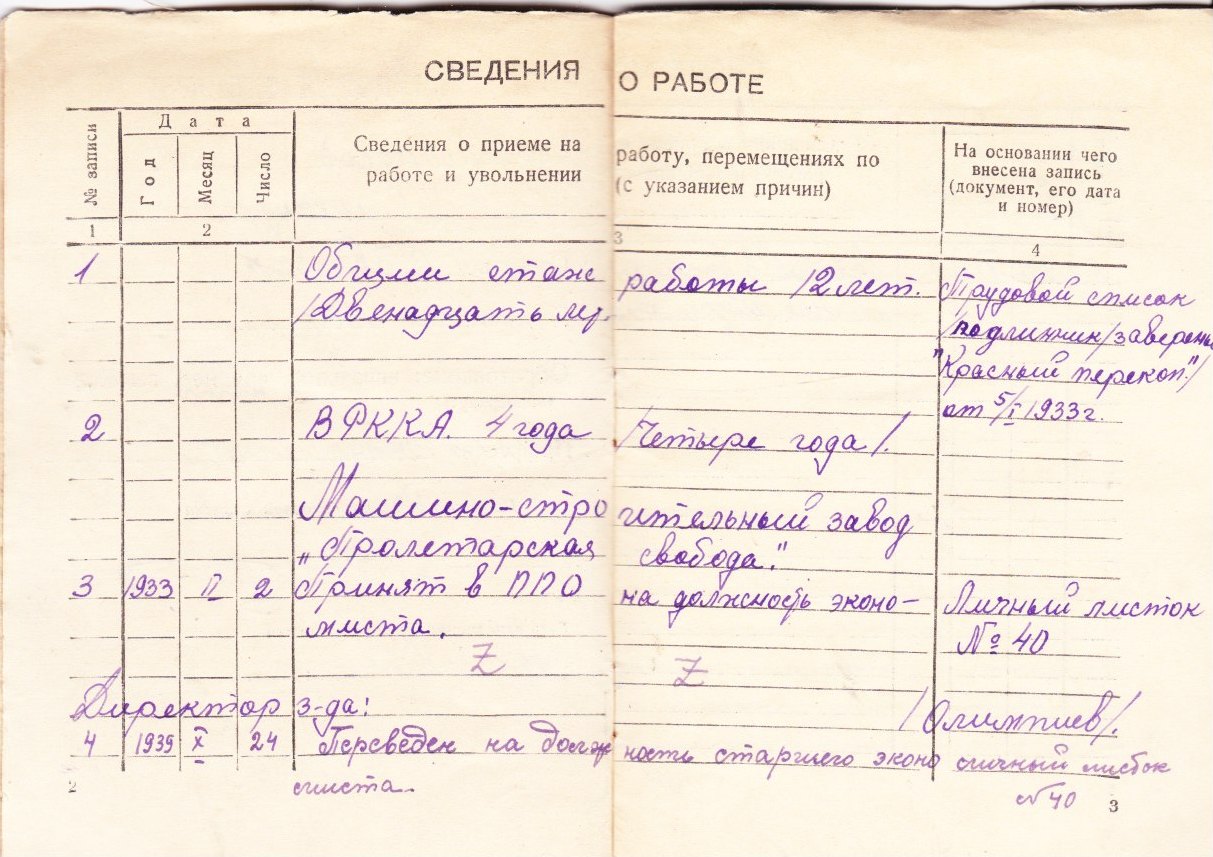 СВЕДЕНИЯ О РАБОТЕ
№ записи
Дата
Год
Месяц
Число
Сведения о приеме на работу, перемещениях по
работе и увольнении (с указанием причин)
На основании чего
внесена запись
(документ, его дата
и номер)
1 2 3 4
1 Общий стаж работы 12 лет. Трудовой список
/Двенадцать лет. /подлинник/заверен
"Красный перекоп"/
от 5/I 1933 г.
2 В РККА. 4 года /Четыре года/.
Машино-строительный завод
„Пролетарская свобода."
3 1933 II 2 Принят в ППО на должность эконо- Личный листок
миста. № 40
Z Z
Директор з-да: /Олимпиев/.
4 1939 X 24 Переведен на должность старшего эконо Личный листок
миста. № 40
2 3